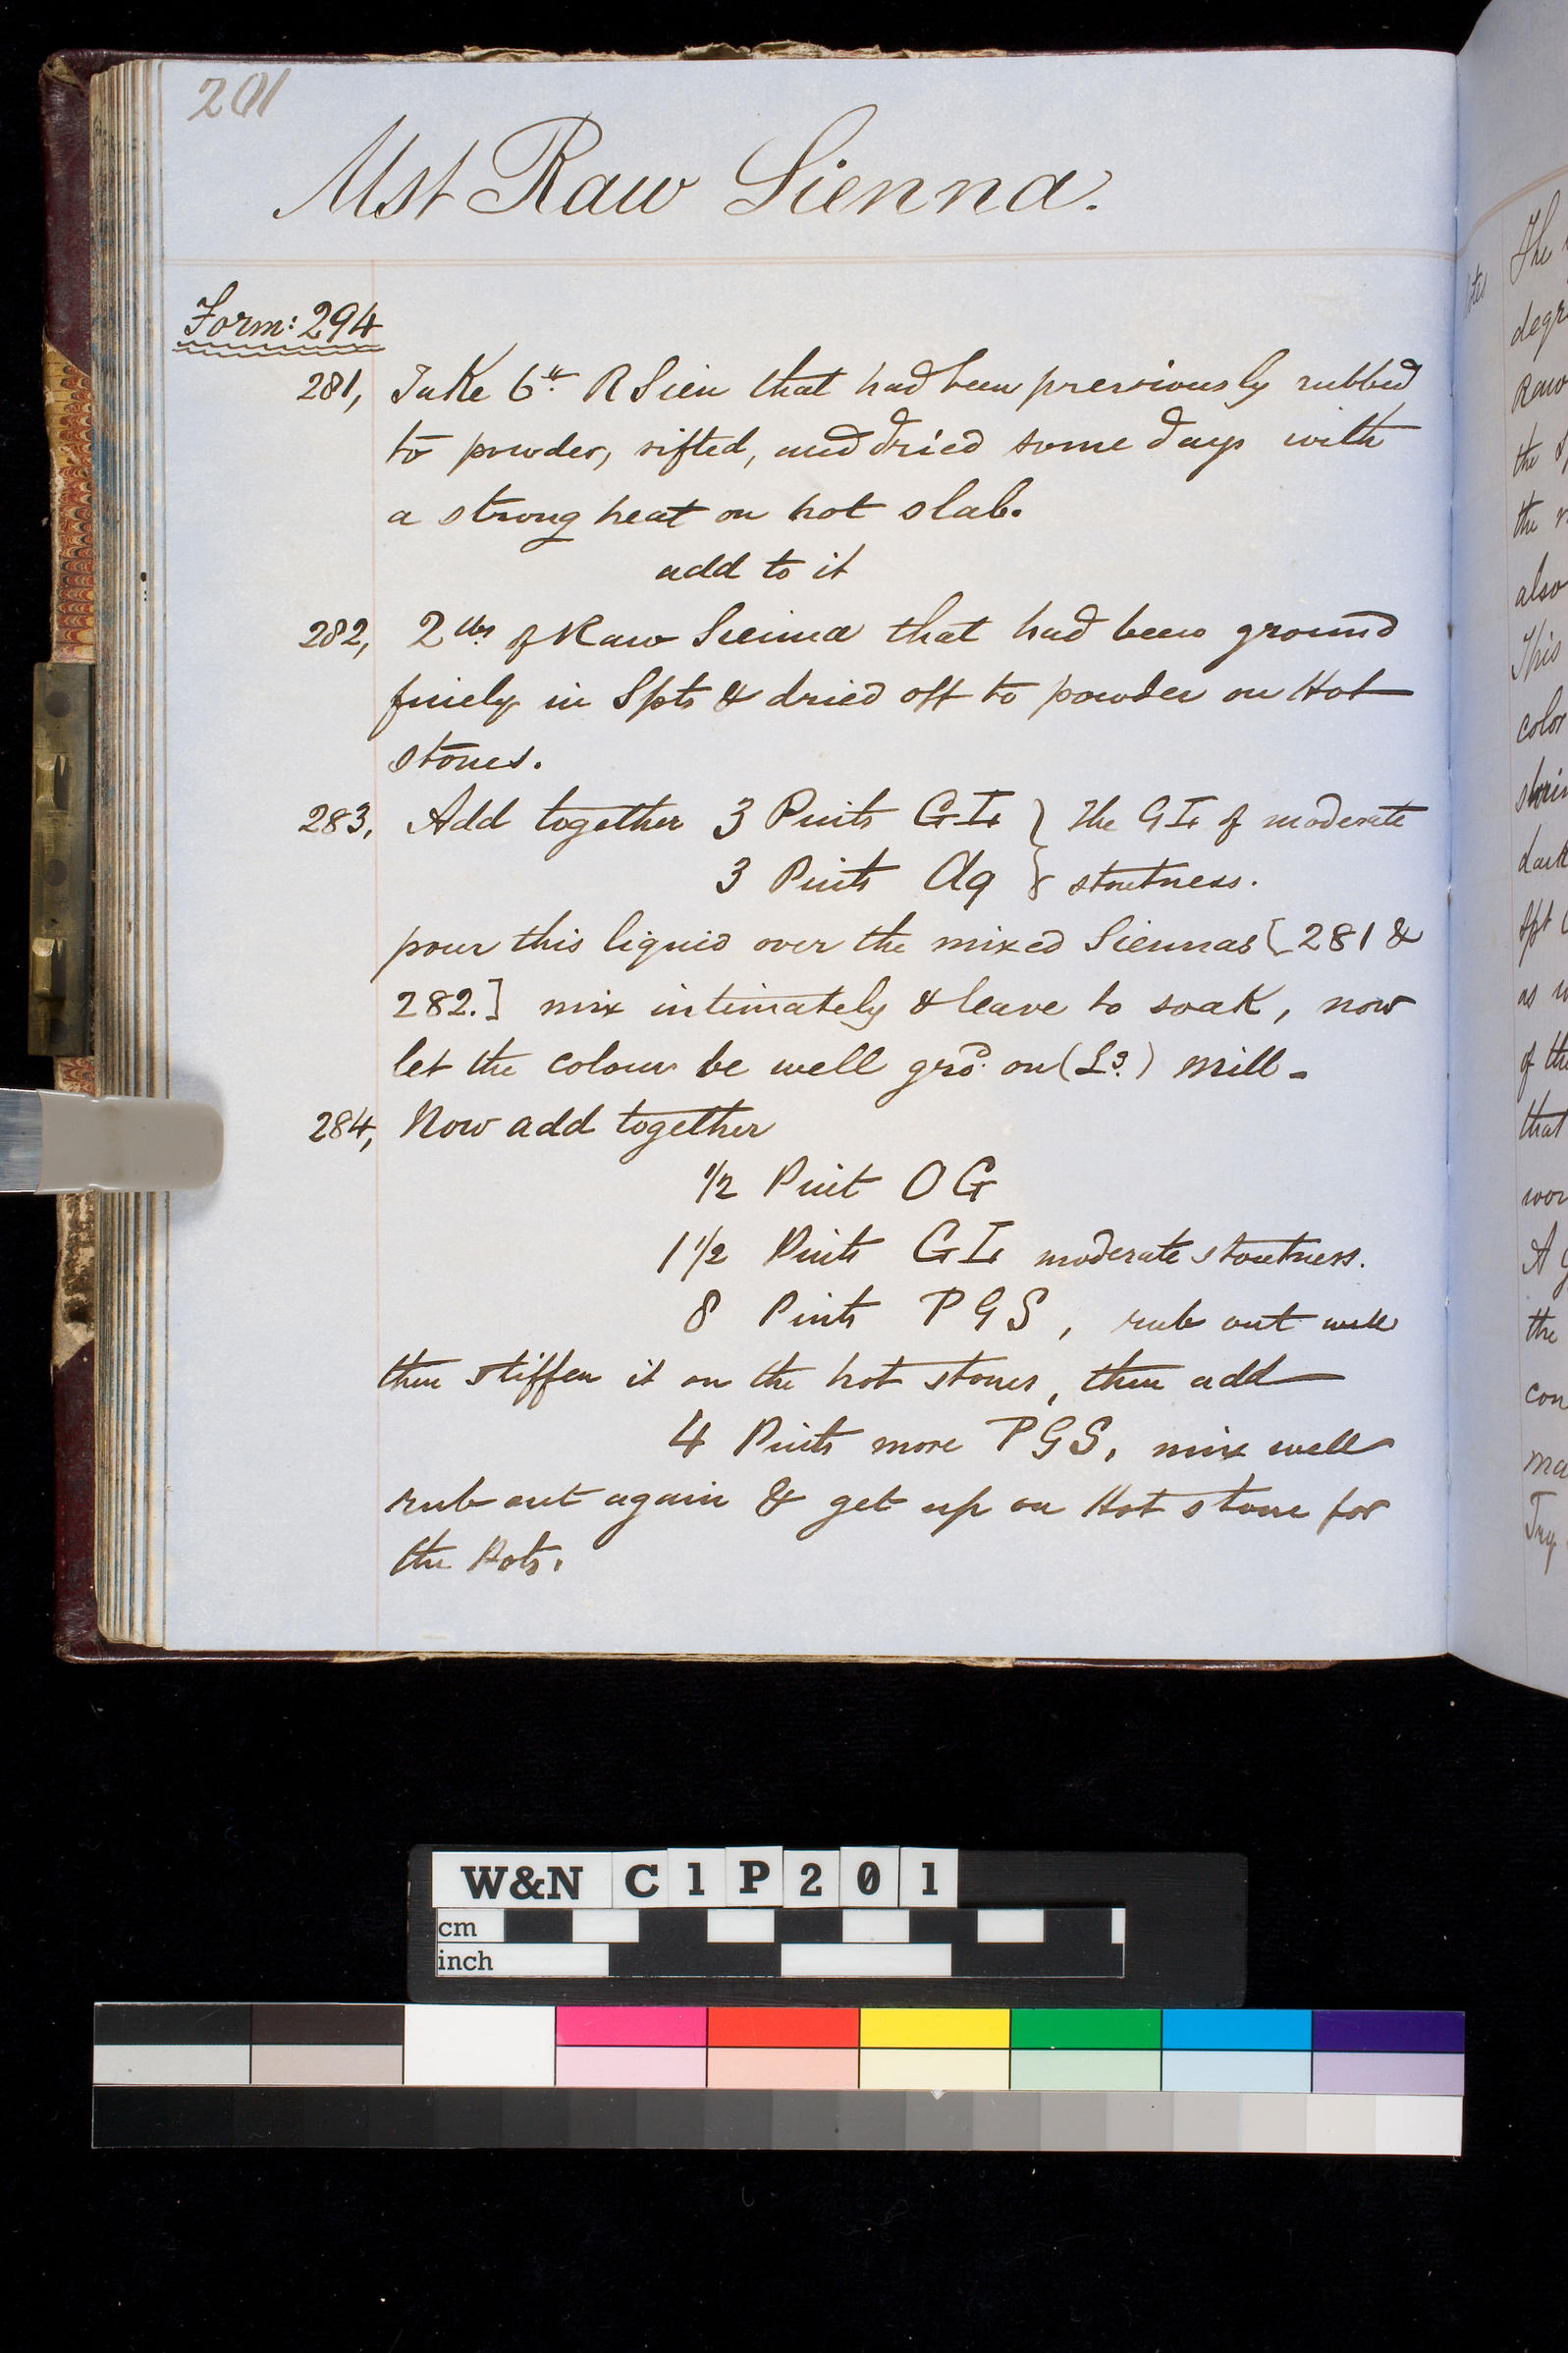 201
Mst Raw Sienna.
Form: 294
281, Take 6 lb R Sien that had been previously rubbed
to powder, sifted, and dried some days with
a strong heat on hot slab.
add to it
282, 2 lbs of Raw Sienna that had been ground
finely in Spts & dried off to powder on Hot
stones.
283, Add together 3 Pints G I } The G I of moderate
3 Pints Aq } stoutness.
pour this liquid over the mixed Siennas [281 &
282.] mix intimately & leave to soak, now
let the colour be well grd. on (L3.) Mill -
284, Now add together
1/2 Pint O G
1 1/2 Pints G I moderate stoutness.
8 Pints P G S, rub out well
then stiffen it on the hot stones, then add
4 Pints more P G S, mix well
rub out again & get up on Hot stone for
the Pots.
The
degr
Raw
the
the
also
This
color
dark
Spt
as
of the
that
wor
A
the
con
ma
Try
W&N C1P201
cm
inch